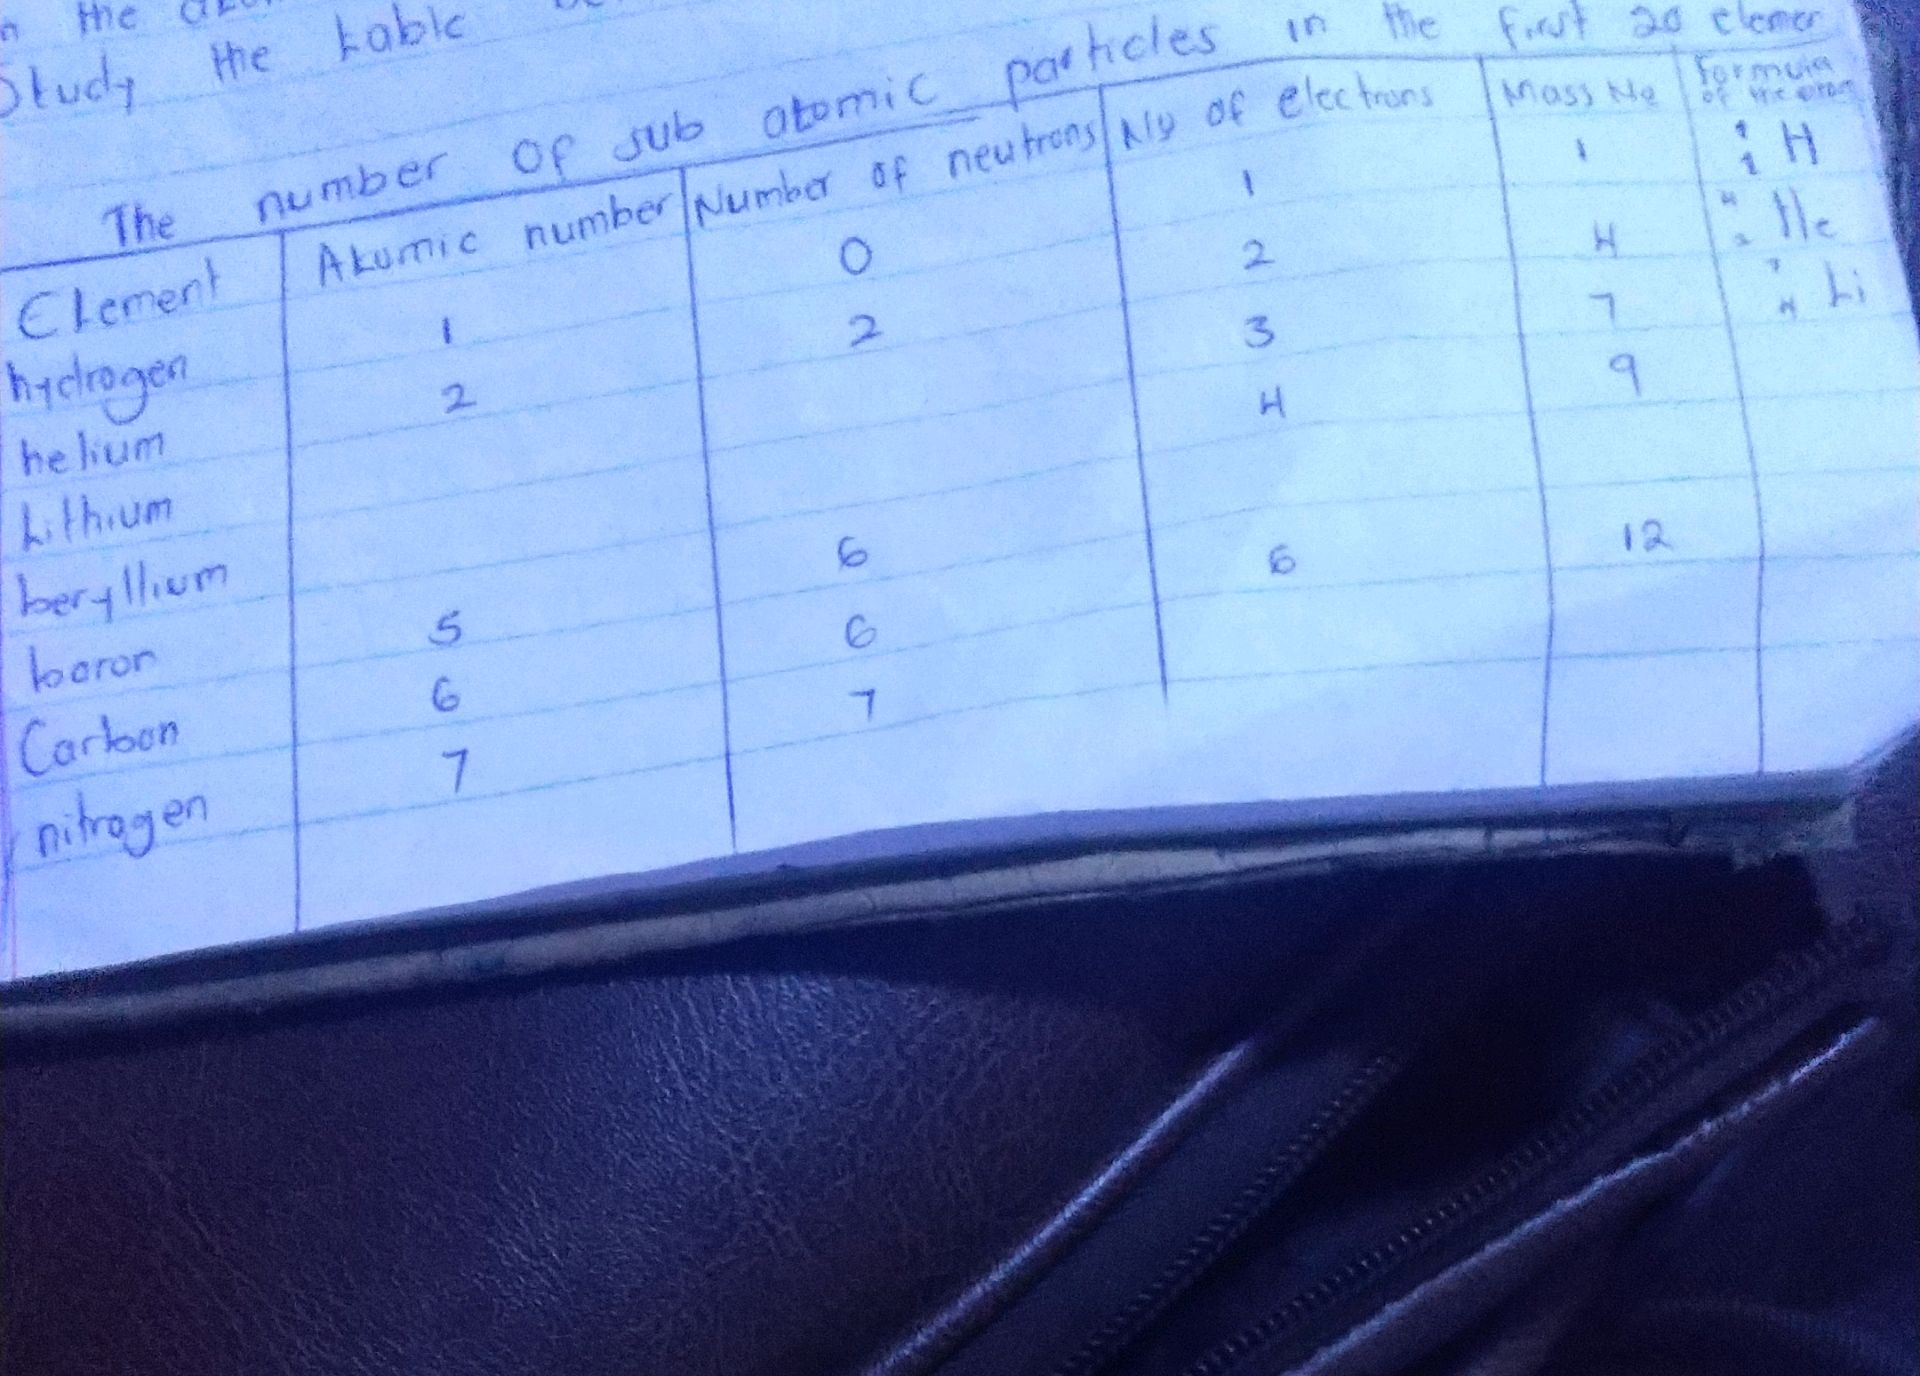 the
Study the table
The number of sub atomic particles in the first 20 elemen
Element Atomic number Number of neutrons No of electrons Mass No Formula of the atom
hydrogen 1 0 1 1 1 1 H
helium 2 2 2 4 4 2 He
Lithium 3 7 7 4 Li
beryllium 4 9
boron 5 6
Carbon 6 6 6 12
nitrogen 7 7